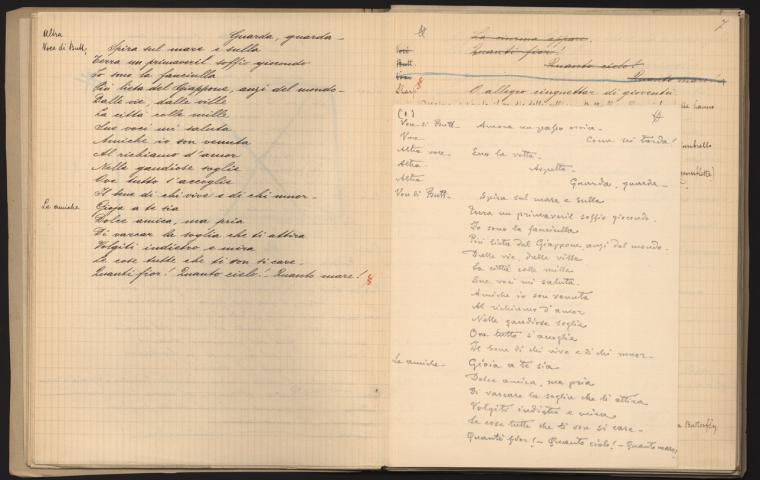 Altra
Guarda, guarda -
Voce di Butt.
Spira sul mare e sulla
Terra un primaveril soffio giocondo
Io sono la fanciulla
Più lieta del Giappone, anzi del mondo -
Dalle vie, dalle ville
La città colle mille
Sue voci mi saluta
Amiche io son venuta
Al richiamo d'amor
Nelle gaudiose soglie
Ove tutto s'accoglie
Il bene di chi vive e di chi muor -
Le amiche
Gioja a te sia
Dolce amica, ma pria
Di varcar la soglia che ti attira
Volgiti indietro e mira
Le cose tutte che ti son sì care -
Quanti fior! Quanto cielo! - Quanto mare!
7
La cima appare.
Quanti fior!
Butt.
Quanto cielo!
Quanto mare!
O allegro cinguettar di gioventù
(1)
Voce di Butt -
Ancora un passo or via -
Voce -
Come sei tarda!
Altra voce -
Ecco la vetta -
Altra -
Aspetta -
Altra
Guarda, guarda -
Voce di Butt -
Spira sul mare e sulla
Terra un primaveril soffio giocondo.
Io sono la fanciulla
Più lieta del Giappone, anzi del mondo -
Dalle vie, dalle ville
La città colle mille
Sue voci mi saluta.
Amiche io son venuta
Al richiamo d'amor
Nelle gaudiose soglie
Ove tutto s'accoglie
Il bene di chi vive e di chi muor -
Le amiche -
Gioia a te sia
Dolce amica, ma pria
Di varcare la soglia che ti attira
Volgiti indietro e mira
Le cose tutte che ti son sì care -
Quanti fior! - Quanto cielo! - Quanto mare!
Butterfly